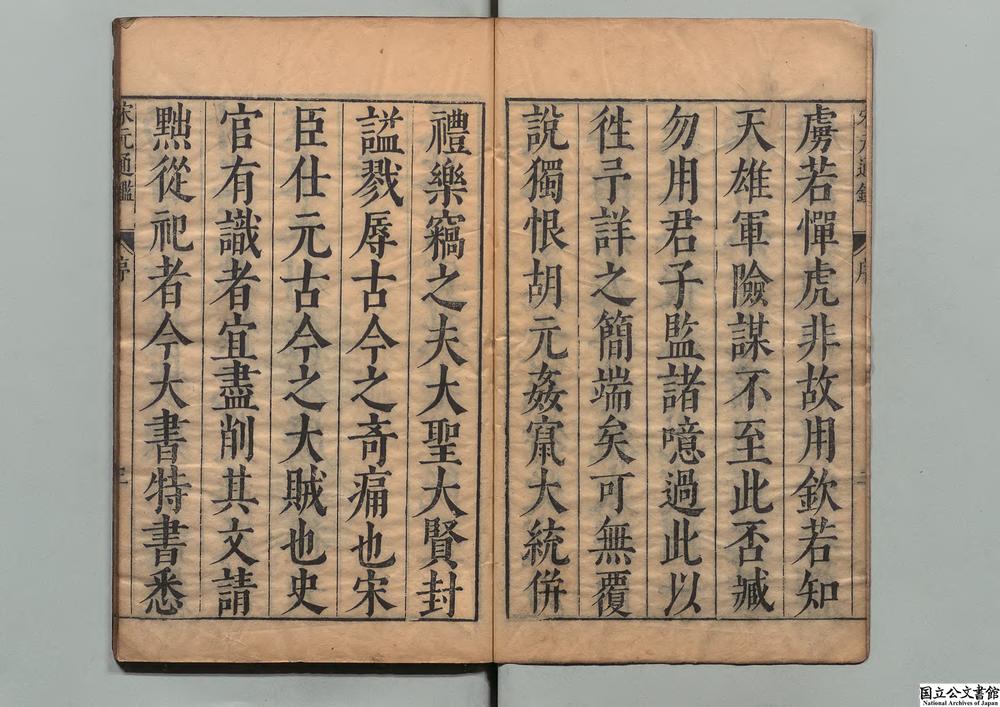 虜若憚虎非故用欽若知
天雄軍險謀不至此否臧
勿用君子監諸噫過此以
徃予詳之簡端矣可無覆
說獨恨胡元姦窩大統併
禮樂竊之夫大聖大賢封
謚戮辱古今之奇痛也宋
臣仕元古今之大賊也史
官有識者宜盡削其文請
黜從祀者今大書特書悉
宋元通鑑
序
国立公文書館
National Archives of Japan